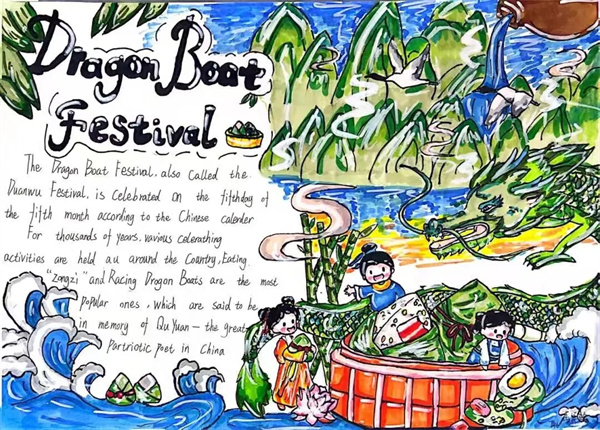 Dragon Boat
Festival
The Dragon Boat Festival, also called the
Duanwu Festival, is celebrated on the fifthday of
the fifth month according to the Chinese calender
For thousands of years, various celerathing
activities are held au around the Country, Eating
"zongzi" and Racing Dragon Boats are the most
popular ones, which are said to be
in memory of Qu Yuan — the great
Partriotic poet in China